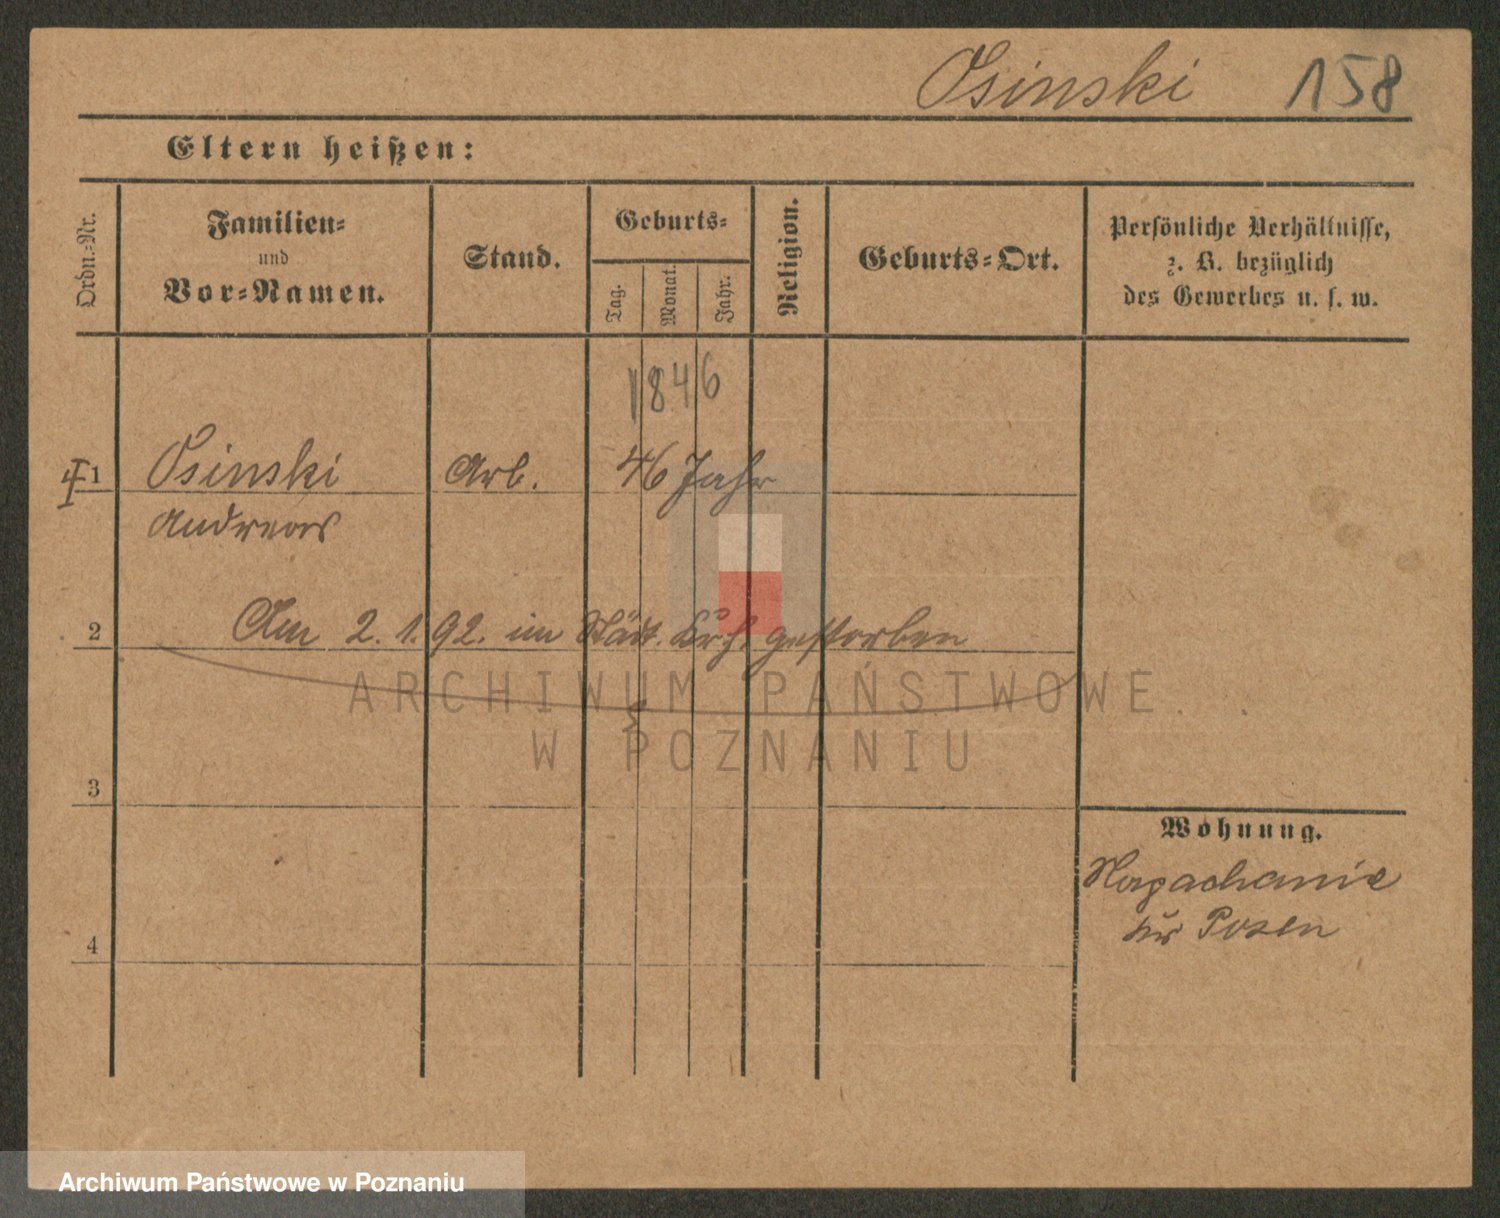 Osinski 158
Eltern heißen:
Ordn.-Nr.
Familien-
und
Vor-Namen.
Stand.
Geburts-
Tag.
Monat.
Jahr.
Religion.
Geburts-Ort.
Persönliche Verhältnisse,
z. B. bezüglich
des Gewerbes u. s. w.
1846
1 Osinski Arb. 46 Jahr
Andreas
2 Am 2. 1. 92. im Städt. Krhs gestorben
3
Wohnung.
Napachanie
Krs Posen
4
ARCHIWUM PAŃSTWOWE
W POZNANIU
Archiwum Państwowe w Poznaniu